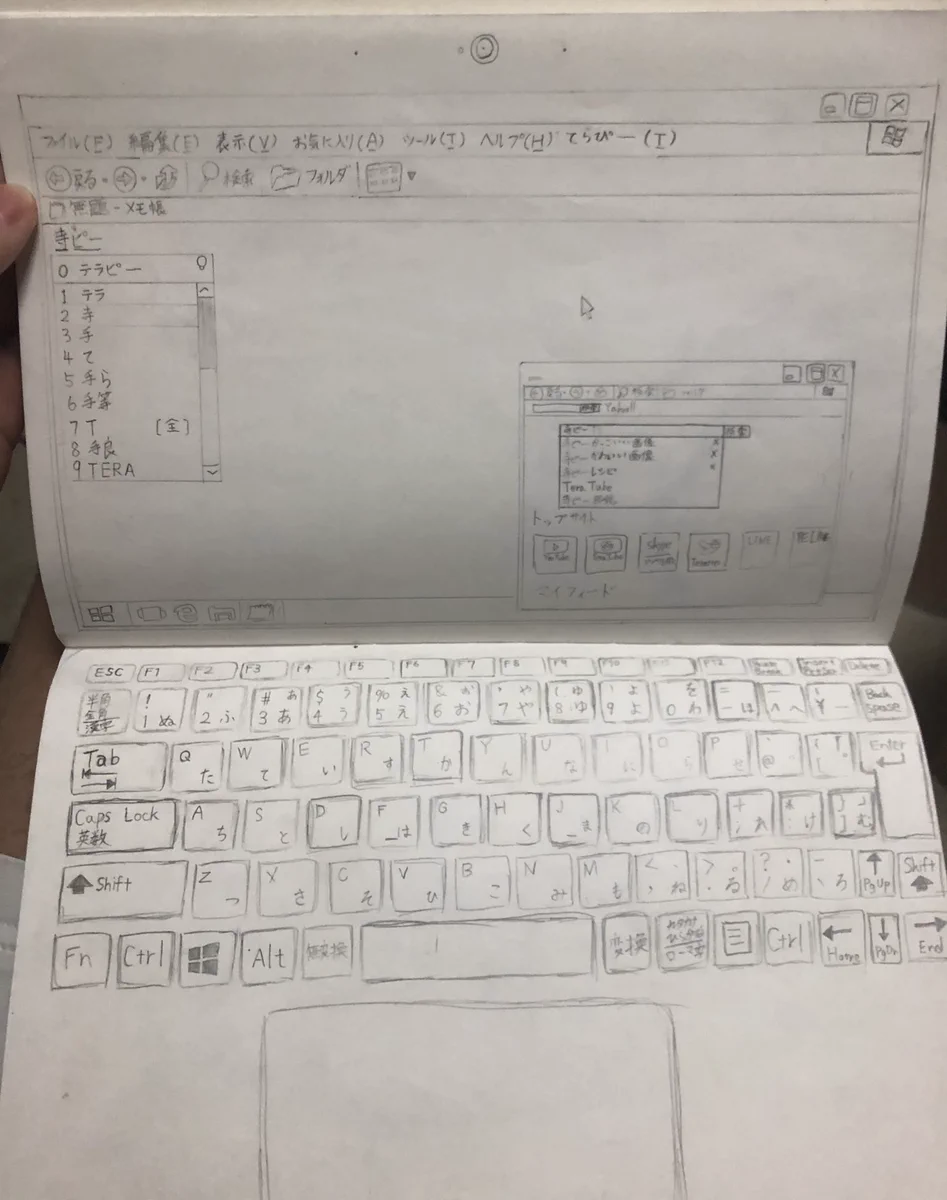 ファイル(F) 編集(E) 表示(V) お気に入り(A) ツール(T) ヘルプ(H) てらぴー(T)
戻る 検索 フォルダ
無題 - メモ帳
寺ピー
0 テラピー
1 テラ
2 寺
3 手
4 て
5 手ら
6 手等
7 T [全]
8 手良
9 TERA
戻る 検索
検索 Yahoo!!
寺ピー 検索
寺ピー かっこいい 画像 x
寺ピー かわいい 画像 x
寺ピー レシピ x
Tera Tube
寺ピー
トップサイト
YouTube Skype LINE
マイフィード
ESC F1 F2 F3 F4 F5 F6 F7 F8 F9 F10 F12 Delete
半角 全角 漢字 ! 1 ぬ " 2 ふ # ぁ 3 あ $ ぅ 4 う % ぇ 5 え & ぉ 6 お ' ゃ 7 や ( ゅ 8 ゆ ) ょ 9 よ を 0 わ = - ほ ^ へ ¥ ー Back space
Tab Q た W て E い R す T か Y ん U な I に O ら P せ @ [ Enter
Caps Lock 英数 A ち S と D し F は G き H く J ま K の L り + ; れ * : け } 」 ] む
Shift Z つ X さ C そ V ひ B こ N み M も < 、 , ね > 。 . る ? ・ / め _ \ ろ PgUp Shift
Fn Ctrl Alt 無変換 変換 カタカナ ひらがな ローマ字 Ctrl Home PgDn End